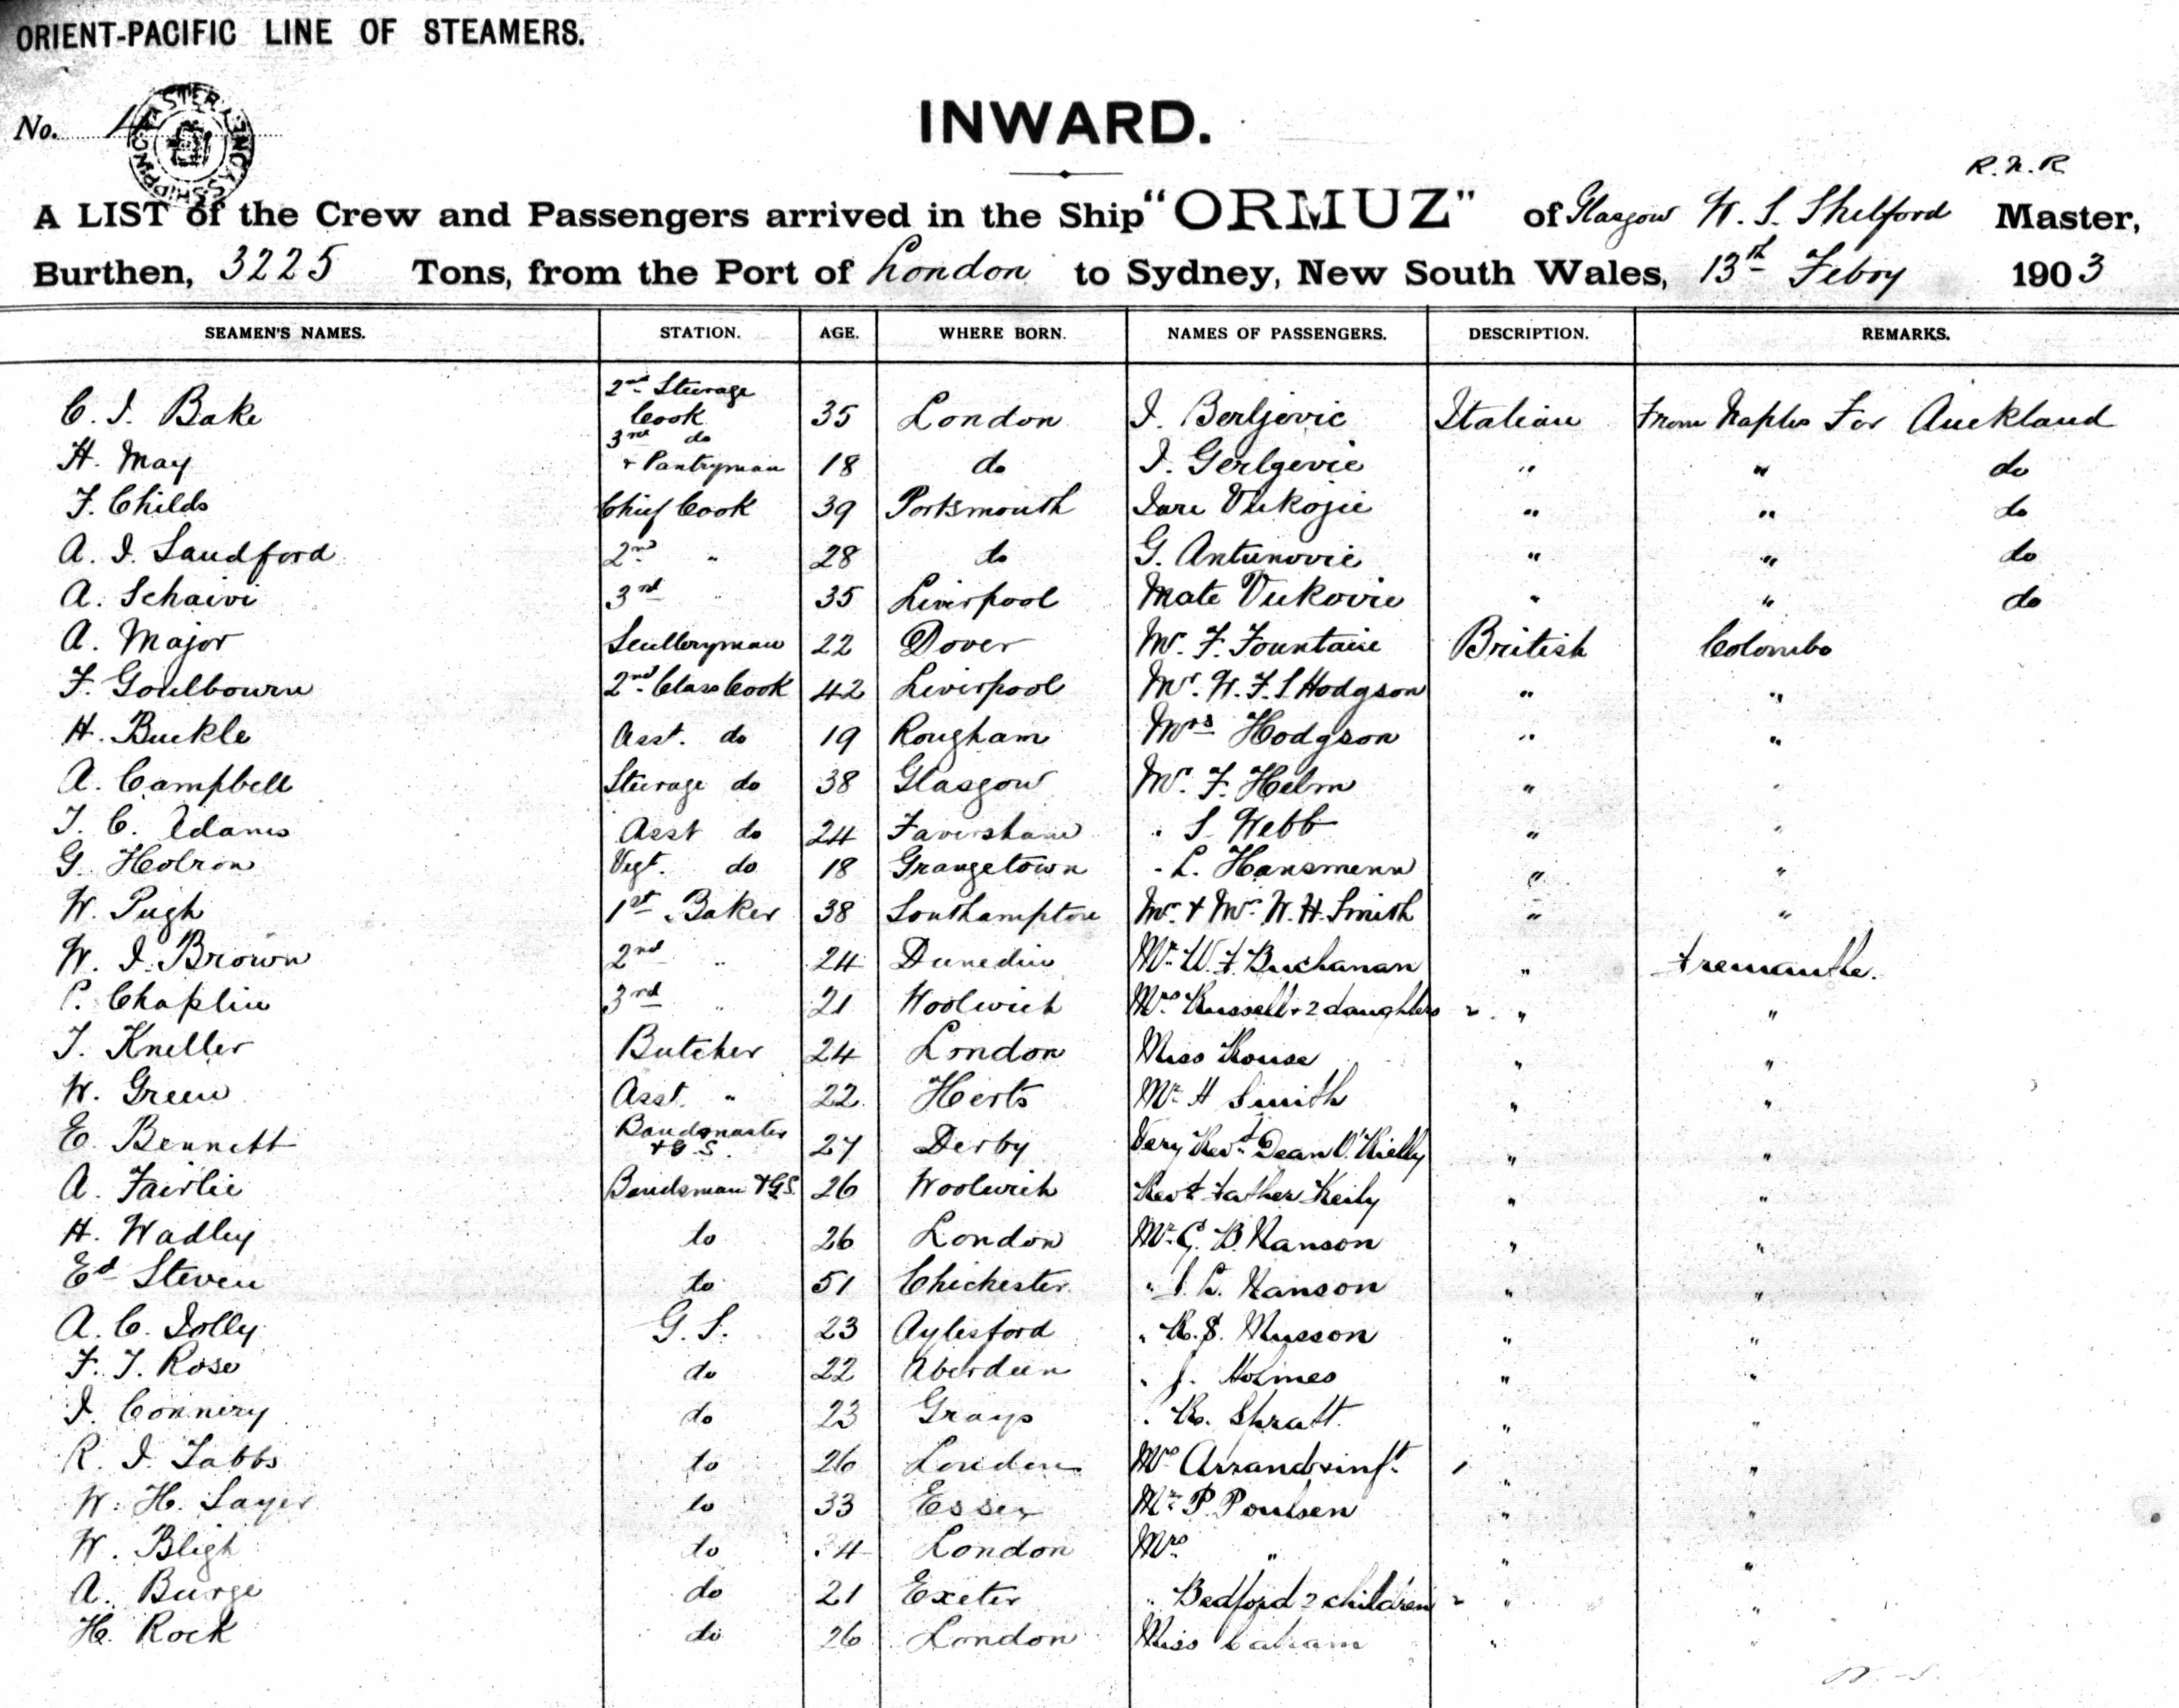 ORIENT-PACIFIC LINE OF STEAMERS.
No.
SHIPPING MASTER
INWARD.
R.N.R
A LIST of the Crew and Passengers arrived in the Ship "ORMUZ" of Glasgow W. S. Shelford Master,
Burthen, 3225 Tons, from the Port of London to Sydney, New South Wales, 13th Febry 1903
SEAMEN'S NAMES. STATION. AGE. WHERE BORN. NAMES OF PASSENGERS. DESCRIPTION. REMARKS.
C. J. Bake 2nd Steerage Cook 35 London J. Berljevic Italian From Naples For Auckland
H. May 3rd do + Pantryman 18 do J. Gerlgevic " " do
F. Childs Chief Cook 39 Portsmouth Jure Vukojie " " do
A. J. Sandford 2nd " 28 do G. Antunovic " " do
A. Schaivi 3rd " 35 Liverpool Mate Vukovic " " do
A. Major Sculleryman 22 Dover Mr. F. Fountaine British Colombo
F. Goulbourn 2nd Class Cook 42 Liverpool Mr. W. F. S Hodgson " "
H. Buckle Asst. do 19 Rougham Mrs Hodgson " "
A. Campbell Steerage do 38 Glasgow Mr. F. Helm " "
T. C. Adams Asst do 24 Faversham " S. Webb " "
G. Holron Vegt. do 18 Grangetown " L. Hansmenn " "
W. Pugh 1st Baker 38 Southampton Mr. + Mrs W. H. Smith " "
W. J. Brown 2nd " 24 Dunedin Mr. W. F. Buchanan " Fremantle.
C. Chaplin 3rd " 21 Woolwich Mrs Russell + 2 daughters 2 " "
T. Kneller Butcher 24 London Miss Rouse " "
W. Green Asst. " 22 Herts Mr. H Smith " "
E. Bennett Bandsmaster + G. S. 27 Derby Very Revd. Dean O'Rielly " "
A. Fairlie Bandsman + G.S. 26 Woolwich Revd Father Keily " "
H. Wadley do 26 London Mr. G. B. Hanson " "
Ed Steven do 51 Chichester " L. Hanson " "
A. C. Jolly G. S. 23 Aylesford " R. S. Musson " "
F. T. Rose do 22 Aberdeen " J. Holmes " "
J. Connery do 23 Grays " R. Spratt. " "
R. J. Tabbs do 26 London Mrs Arrand + inft. 1 " "
W. H. Sayer do 33 Essex Mr. P. Poulsen " "
W. Bligh do 34 London Mrs " " "
A. Burge do 21 Exeter " Bedford 2 children 2 " "
H. Rock do 26 London Miss " "